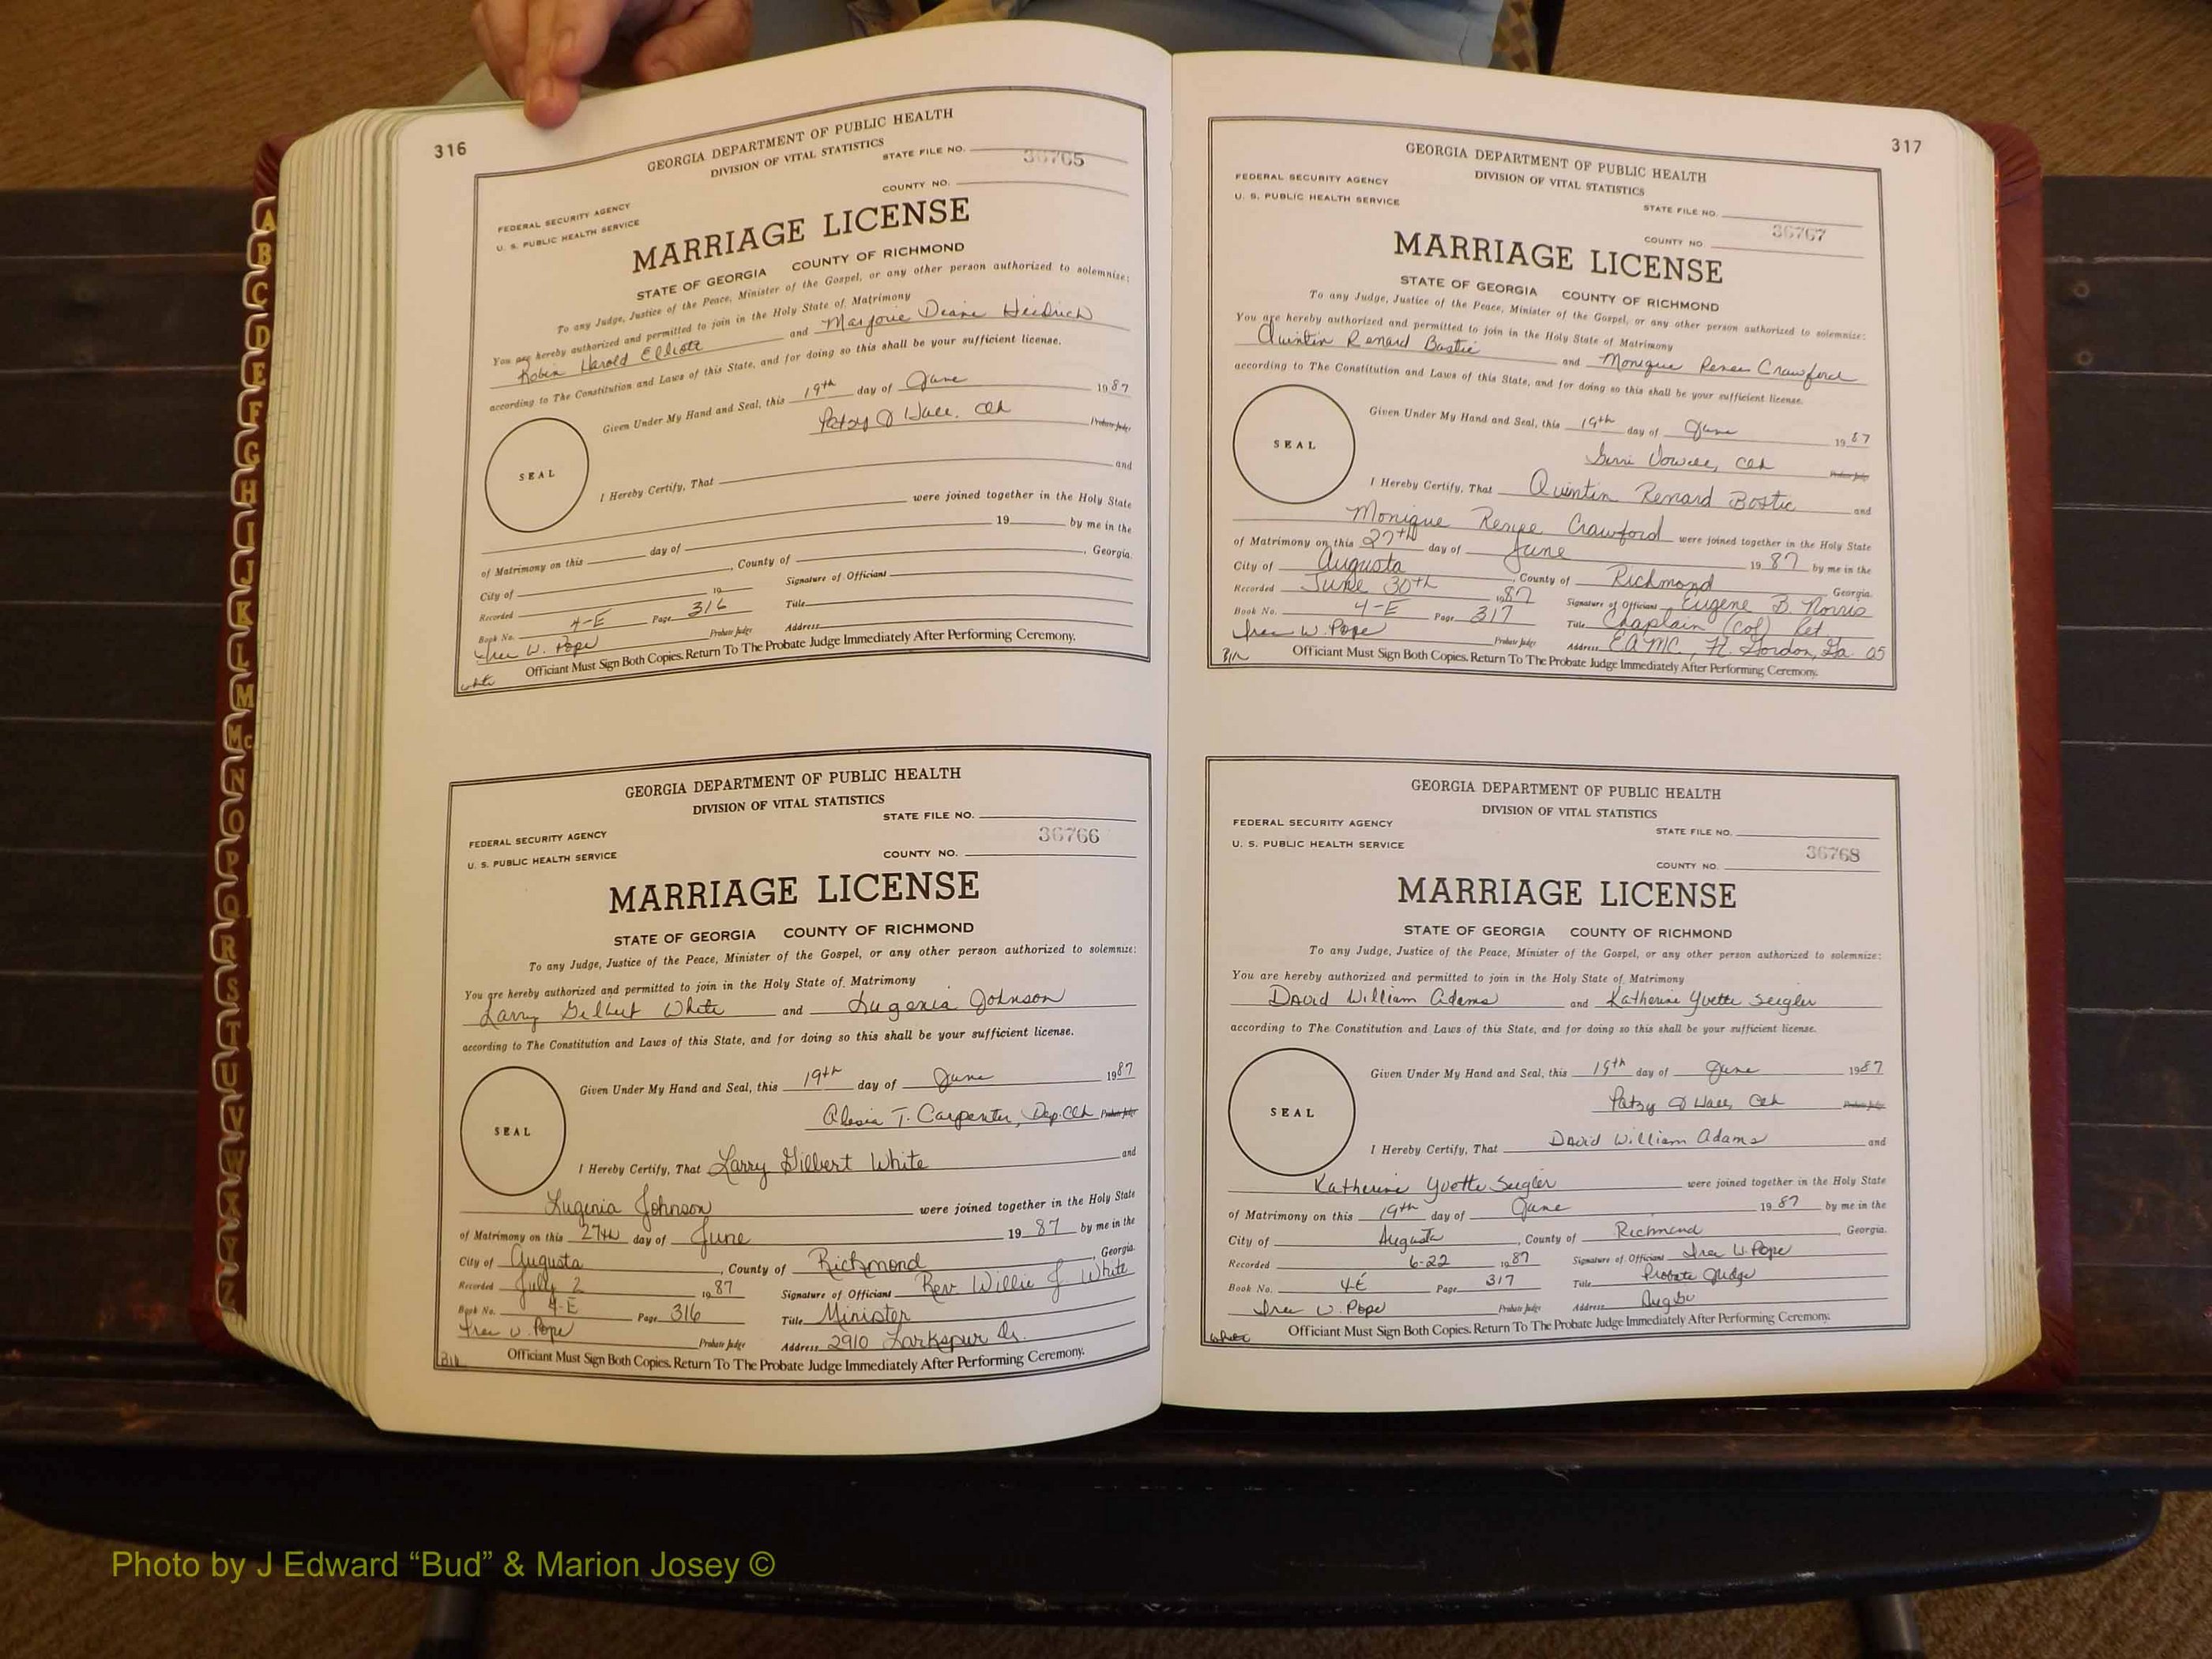 316
GEORGIA DEPARTMENT OF PUBLIC HEALTH
DIVISION OF VITAL STATISTICS
STATE FILE NO.
36765
COUNTY NO.
FEDERAL SECURITY AGENCY
U. S. PUBLIC HEALTH SERVICE
MARRIAGE LICENSE
STATE OF GEORGIA COUNTY OF RICHMOND
To any Judge, Justice of the Peace, Minister of the Gospel, or any other person authorized to solemnize:
You are hereby authorized and permitted to join in the Holy State of Matrimony
Robin Harold Elliott and Marjorie Diane Heidrich
according to The Constitution and Laws of this State, and for doing so this shall be your sufficient license.
Given Under My Hand and Seal, this 19th day of June 1987
Patsy Q Hall, Clk Probate Judge
SEAL
I Hereby Certify, That and
were joined together in the Holy State
of Matrimony on this day of 19 by me in the
City of , County of , Georgia.
Recorded 19 Signature of Officiant
Book No. 4-E Page 316 Title
Ira W. Pope Probate Judge Address
Officiant Must Sign Both Copies. Return To The Probate Judge Immediately After Performing Ceremony.
white
GEORGIA DEPARTMENT OF PUBLIC HEALTH
DIVISION OF VITAL STATISTICS
STATE FILE NO.
FEDERAL SECURITY AGENCY
36766
U. S. PUBLIC HEALTH SERVICE
COUNTY NO.
MARRIAGE LICENSE
STATE OF GEORGIA COUNTY OF RICHMOND
To any Judge, Justice of the Peace, Minister of the Gospel, or any other person authorized to solemnize:
You are hereby authorized and permitted to join in the Holy State of Matrimony
Larry Gilbert White and Lugenia Johnson
according to The Constitution and Laws of this State, and for doing so this shall be your sufficient license.
Given Under My Hand and Seal, this 19th day of June 1987
Alesia T. Carpenter, Dep. Clk Probate Judge
SEAL
I Hereby Certify, That Larry Gilbert White and
Lugenia Johnson were joined together in the Holy State
of Matrimony on this 27th day of June 1987 by me in the
City of Augusta , County of Richmond , Georgia.
Recorded July 2 1987 Signature of Officiant Rev Willie J. White
Book No. 4-E Page 316 Title Minister
Ira W. Pope Probate Judge Address 2910 Larkspur Dr.
Officiant Must Sign Both Copies. Return To The Probate Judge Immediately After Performing Ceremony.
Blk
317
GEORGIA DEPARTMENT OF PUBLIC HEALTH
DIVISION OF VITAL STATISTICS
FEDERAL SECURITY AGENCY
U. S. PUBLIC HEALTH SERVICE
STATE FILE NO.
36767
COUNTY NO.
MARRIAGE LICENSE
STATE OF GEORGIA COUNTY OF RICHMOND
To any Judge, Justice of the Peace, Minister of the Gospel, or any other person authorized to solemnize:
You are hereby authorized and permitted to join in the Holy State of Matrimony
Quintin Renard Bostic and Monique Renee Crawford
according to The Constitution and Laws of this State, and for doing so this shall be your sufficient license.
Given Under My Hand and Seal, this 19th day of June 1987
Vowell, Clk Probate Judge
SEAL
I Hereby Certify, That Quintin Renard Bostic and
Monique Renee Crawford were joined together in the Holy State
of Matrimony on this 27th day of June 1987 by me in the
City of Augusta , County of Richmond Georgia.
Recorded June 30th 1987 Signature of Officiant Eugene B. Norris
Book No. 4-E Page 317 Title Chaplain (Col) Ret
Ira W. Pope Probate Judge Address EAMC, Ft. Gordon, Ga. 05
Officiant Must Sign Both Copies. Return To The Probate Judge Immediately After Performing Ceremony.
Blk
GEORGIA DEPARTMENT OF PUBLIC HEALTH
DIVISION OF VITAL STATISTICS
FEDERAL SECURITY AGENCY
STATE FILE NO.
U. S. PUBLIC HEALTH SERVICE
36768
COUNTY NO.
MARRIAGE LICENSE
STATE OF GEORGIA COUNTY OF RICHMOND
To any Judge, Justice of the Peace, Minister of the Gospel, or any other person authorized to solemnize:
You are hereby authorized and permitted to join in the Holy State of Matrimony
David William Adams and Katherine Yvette Seigler
according to The Constitution and Laws of this State, and for doing so this shall be your sufficient license.
Given Under My Hand and Seal, this 19th day of June 1987
Patsy Q Hall, Clk Probate Judge
SEAL
I Hereby Certify, That David William Adams and
Katherine Yvette Seigler were joined together in the Holy State
of Matrimony on this 19th day of June 1987 by me in the
City of Augusta , County of Richmond , Georgia.
Recorded 6-22 1987 Signature of Officiant Ira W. Pope
Book No. 4-E Page 317 Title Probate Judge
Ira W. Pope Probate Judge Address
Officiant Must Sign Both Copies. Return To The Probate Judge Immediately After Performing Ceremony.
white
A
B
C
D
E
F
G
H
I
J
K
L
M
Mc
N
O
P
Q
R
S
T
U
V
W
X
Y
Z
Photo by J Edward “Bud” & Marion Josey ©